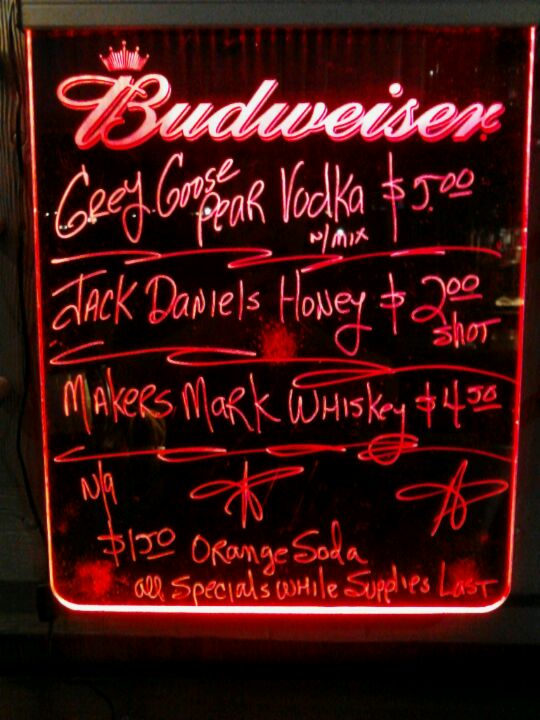 Budweiser
Grey Goose Pear Vodka $5.00
w/mix
Jack Daniels Honey $2.00
shot
Makers Mark Whiskey $4.50
N/A
$1.50 Orange Soda
All Specials While Supplies Last